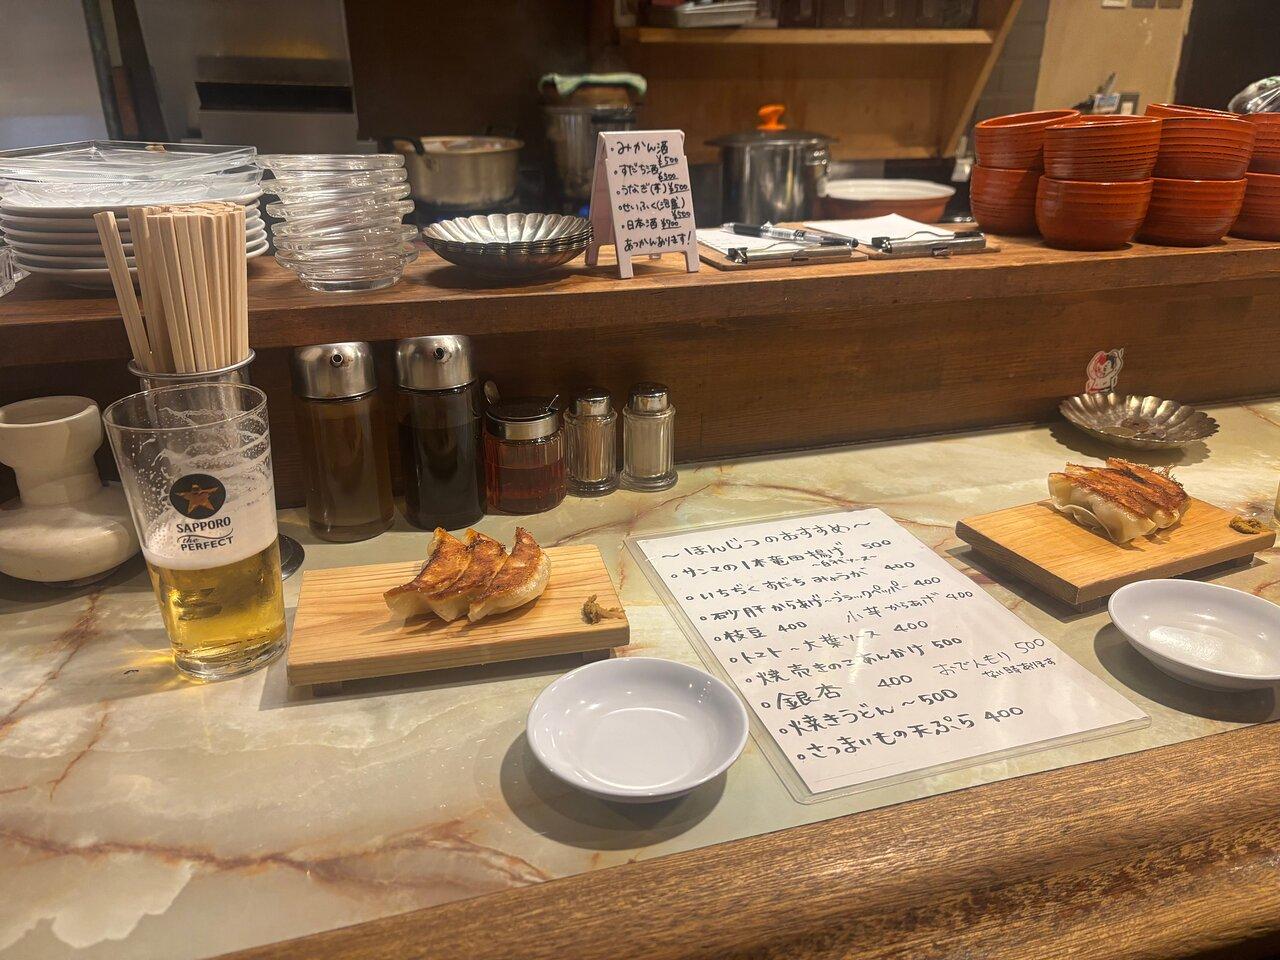 ・みかん酒
¥500
・すだち酒
¥500
・うなぎ(芋)¥500
・せいふく(泡盛)
¥500
・日本酒¥700
あつかんあります!
SAPPORO
the
PERFECT
〜ほんじつのおすすめ〜
・サンマの1本竜田揚げ 500
・いちぢくすだちみょうが 400
・砂肝からあげ〜ブラックペッパー 400
・枝豆 400 小芋からあげ 400
・トマト〜大葉ソース 400
・焼売きのこあんかけ 500
・銀杏 400 おでんもり 500
ない時あります
・焼きうどん〜500
・さつまいもの天ぷら 400